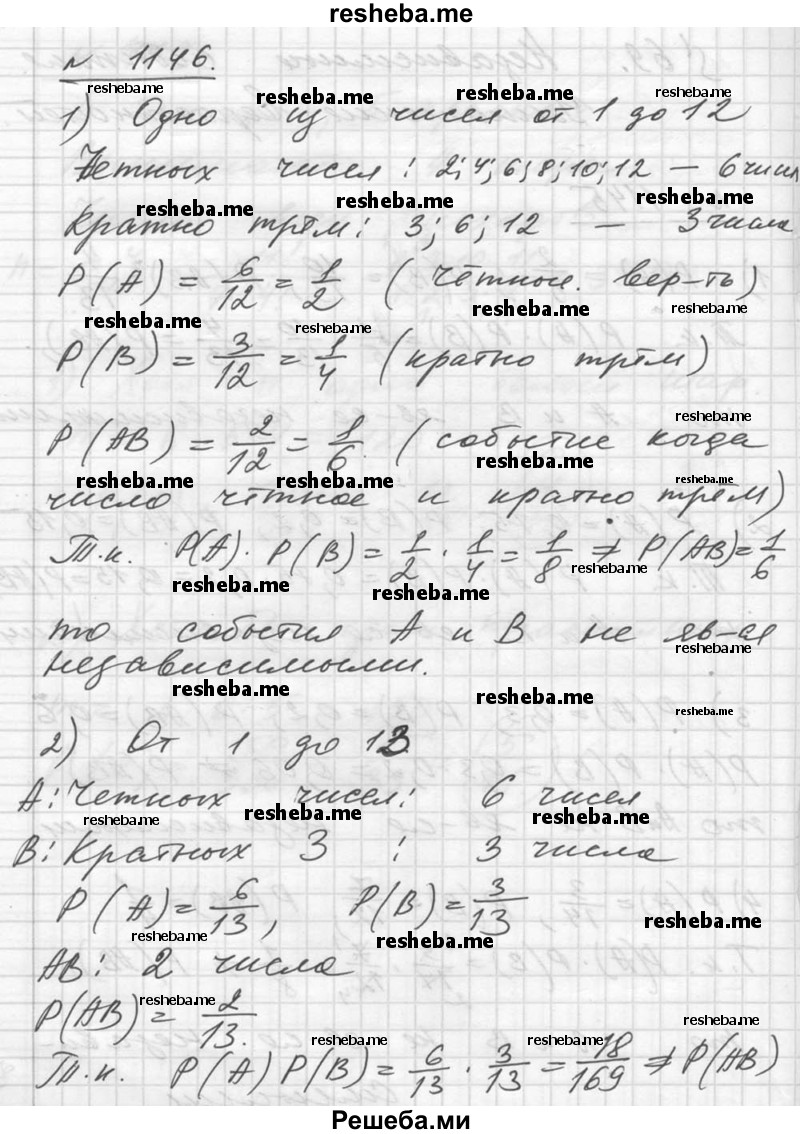 resheba.me
№ 1146.
1) Одно из чисел от 1 до 12
Четных чисел: 2; 4; 6; 8; 10; 12 – 6 чисел
Кратно трём: 3; 6; 12 – 3 числа
P(A) = 6/12 = 1/2 (чётное. вер-ть)
P(B) = 3/12 = 1/4 (кратно трём)
P(AB) = 2/12 = 1/6. (событие когда
число чётное и кратно трём)
Т.к. P(A) · P(B) = 1/2 · 1/4 = 1/8 ≠ P(AB) = 1/6
то события A и B не яв-ся
независимыми.
2) От 1 до 13
A: Четных чисел: 6 чисел
B: Кратных 3 : 3 числа
P(A) = 6/13, P(B) = 3/13
AB: 2 числа
P(AB) = 2/13.
Т.к. P(A) P(B) = 6/13 · 3/13 = 18/169 ≠ P(AB)
Решеба.ми